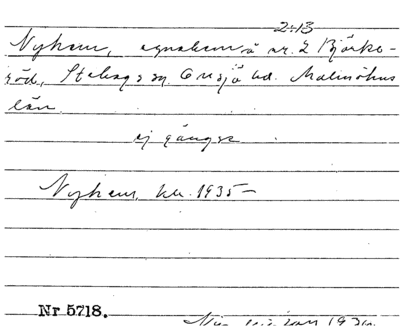 2:13
Nyhem, egnahem å nr. 2 Björke-
röd, Stehags sn. Onsjö hd. Malmöhus
län.
ej gängse
Nyhem, kll. 1935 -
Nr 5718.